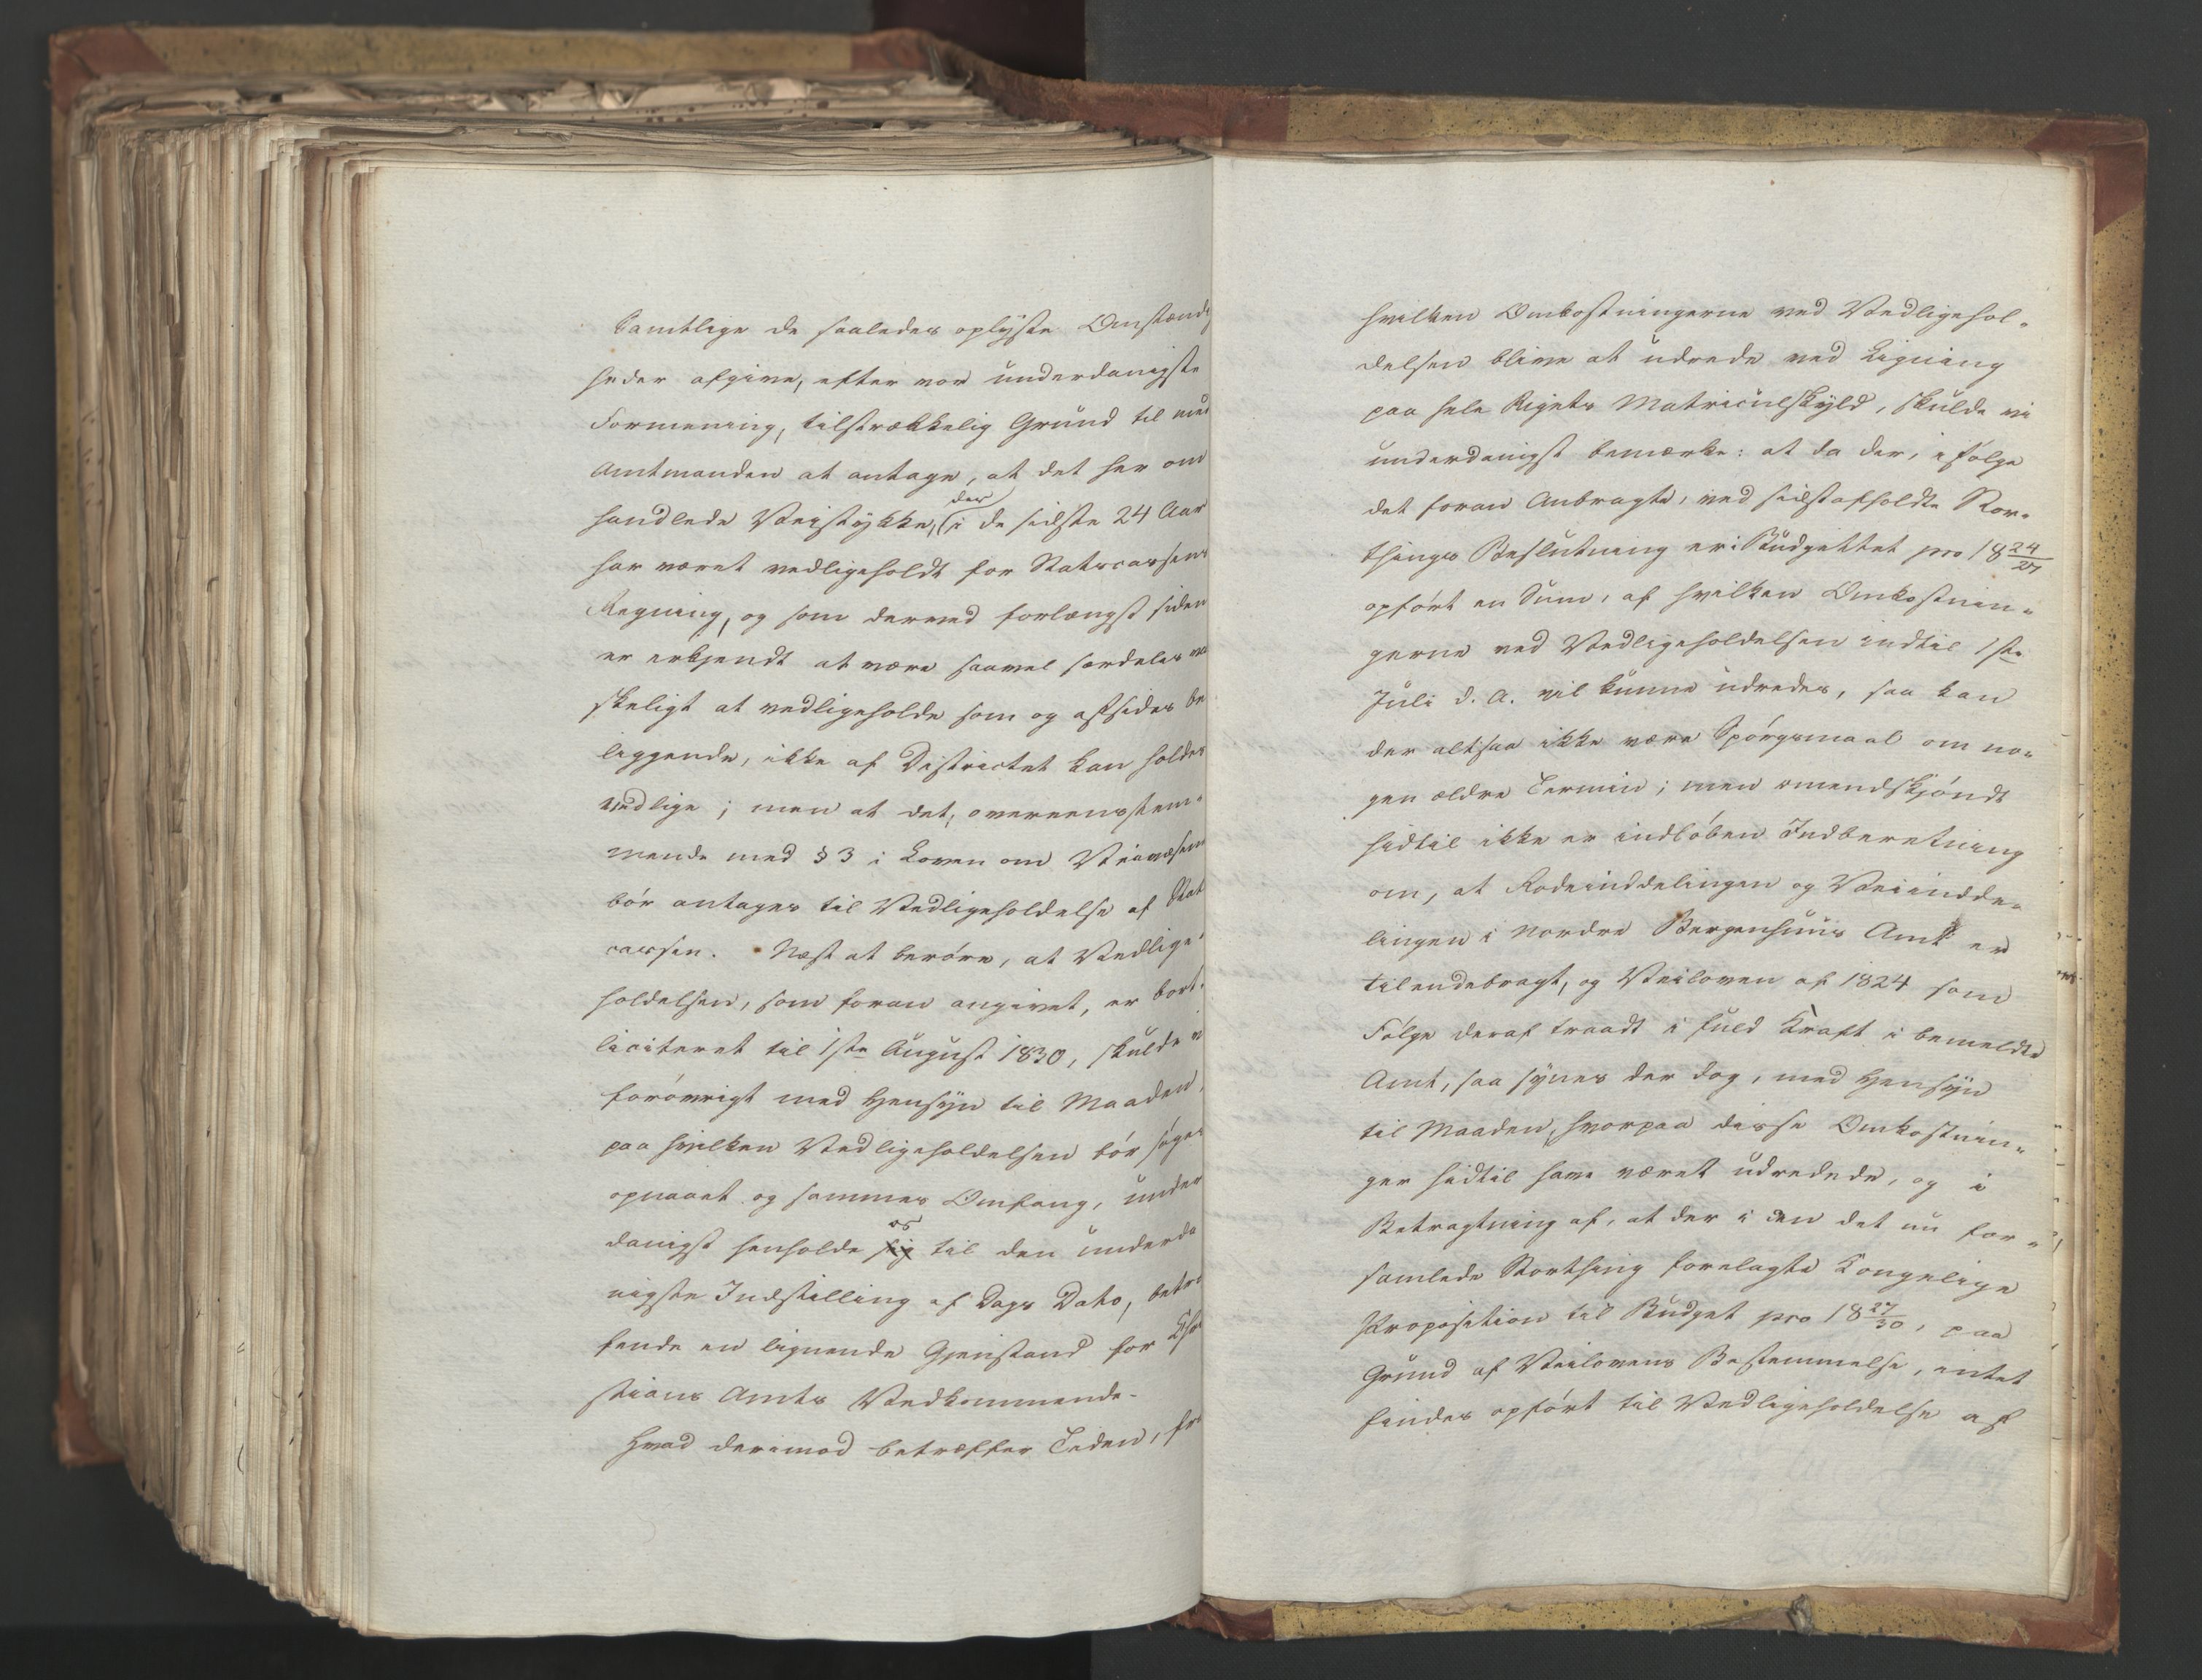 Samtlige de saaledes oplyste Omstænd
heder afgive, efter vor underdanigste
Formening, tilstrækkelig Grund til med
Amtmanden at antage, at det her om
der
handlede Veistykke, i de sidste 24 Aar
har været vedligeholdt for Statscassens
Regning, og som derved forlængst siden
er erkjendt at være saavel særdeles va
skeligt at vedligeholde som og afsides be
liggende, ikke af Districtet kan holdes
vedlige; men at det, overeensstem-
mende med § 3 i Loven om Veivæsen
bör antages til Vedligeholdelse af Stat
cassen. Næst at beröre, at Vedlige-
holdelsen, som foran angivet, er bort-
liciteret til 1ste August 1830, skulde vi
forövrigt med Hensyn til Maaden,
paa hvilken Vedligeholdelsen bör söges
opnaaet og sammes Omfang, under
os
danigst henholde sig til den underda
nigste Indstilling af Dags Dato, betræ
fende en lignende Gjenstand for Chri
stians Amts Vedkommende.
Hvad derimod betræffer Tiden, fra
hvilken Omkostningerne ved Vedligehol-
delsen blive at udrede ved Ligning
paa hele Rigets Matriculskyld, skulde vi
underdanigst bemærke: at da der, ifölge
det foran Anbragte, ved sidstafholdte Stor-
things Beslutning er i Budgettet pro 18 24/27
opfört en Sum, af hvilken Omkostnin-
gerne ved Vedligeholdelsen indtil 1ste
Juli d. A. vil kunne udredes, saa kan
der altsaa ikke være Spörgsmaal om no-
gen ældre Termin; men omendskjöndt
hidtil ikke er indlöben Indberetning
om, at Rodeinddelingen og Veiindde-
lingen i Nordre Bergenhuus Amt er
tilendebragt, og Veiloven af 1824 som
Fölge deraf traadt i fuld Kraft i bemeldte
Amt, saa synes der dog, med Hensyn
til Maaden, hvorpaa disse Omkostnin-
ger hidtil have været udredede, og i
Betragtning af, at der i den det nu for-
samlede Storthing forelagte Kongelige
Proposition til Budget pro 18 27/30, paa
Grund af Veilovens Bestemmelse, intet
findes opfört til Vedligeholdelse af